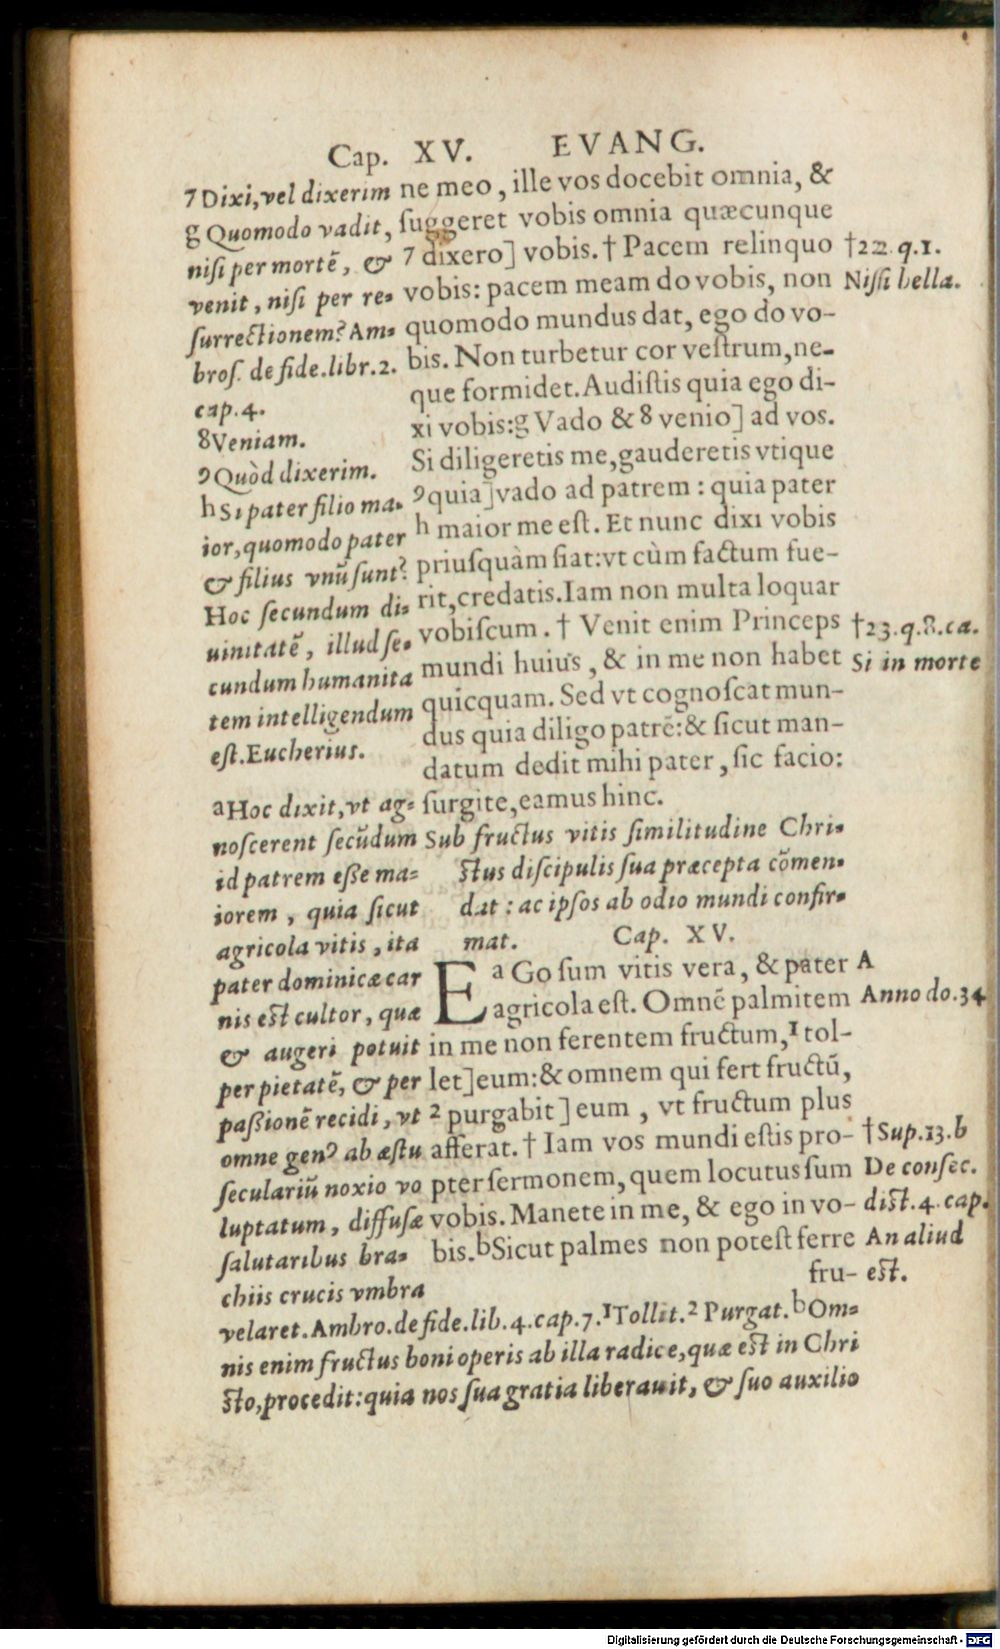 Cap. XV. EVANG.
ne meo, ille vos docebit omnia, &
ſuggeret vobis omnia quæcunque
7 dixero] vobis. † Pacem relinquo
vobis: pacem meam do vobis, non
quomodo mundus dat, ego do vo-
bis. Non turbetur cor veſtrum, ne-
que formidet. Audiſtis quia ego di-
xi vobis: g Vado & 8 venio] ad vos.
Si diligeretis me, gauderetis vtique
9 quia] vado ad patrem: quia pater
h maior me eſt. Et nunc dixi vobis
priuſquàm fiat: vt cùm factum fue-
rit, credatis. Iam non multa loquar
vobiſcum. † Venit enim Princeps
mundi huius, & in me non habet
quicquam. Sed vt cognoſcat mun-
dus quia diligo patrē: & ſicut man-
datum dedit mihi pater, ſic facio:
ſurgite, eamus hinc.
Sub fructus vitis ſimilitudine Chri-
ſtus diſcipulis ſua præcepta cōmen-
dat: ac ipſos ab odio mundi confir-
mat. Cap. XV.
E a Go ſum vitis vera, & pater
agricola eſt. Omnē palmitem
in me non ferentem fructum, 1 tol-
let] eum: & omnem qui fert fructū,
2 purgabit] eum, vt fructum plus
afferat. † Iam vos mundi eſtis pro-
pter ſermonem, quem locutus ſum
vobis. Manete in me, & ego in vo-
bis. b Sicut palmes non poteſt ferre
fru-
7 Dixi, vel dixerim
g Quomodo vadit,
niſi per mortē, &
venit, niſi per re-
ſurrectionem? Am-
broſ. de fide. libr. 2.
cap. 4.
8 Veniam.
9 Quòd dixerim.
h Si pater filio ma-
ior, quomodo pater
& filius vnū ſunt?
Hoc ſecundum di-
uinitatē, illud ſe-
cundum humanita
tem intelligendum
eſt. Eucherius.
a Hoc dixit, vt ag-
noſcerent ſecūdum
id patrem eſſe ma-
iorem, quia ſicut
agricola vitis, ita
pater dominicæ car
nis eſt cultor, quæ
& augeri potuit
per pietatē, & per
paſſionē recidi, vt
omne genꝰ ab æſtu
ſeculariū noxio vo
luptatum, diffuſæ
ſalutaribus bra-
chiis crucis vmbra
velaret. Ambro. de fide. lib. 4. cap. 7. 1 Tollit. 2 Purgat. b Om-
nis enim fructus boni operis ab illa radice, quæ eſt in Chri
ſto, procedit: quia nos ſua gratia liberauit, & ſuo auxilio
†22. q. 1.
Niſſi bella.
†23. q. 8. ca.
Si in morte
A
Anno do. 34
†Sup. 13. b
De conſec.
diſt. 4. cap.
An aliud
eſt.
Digitalisierung gefördert durch die Deutsche Forschungsgemeinschaft - DFG